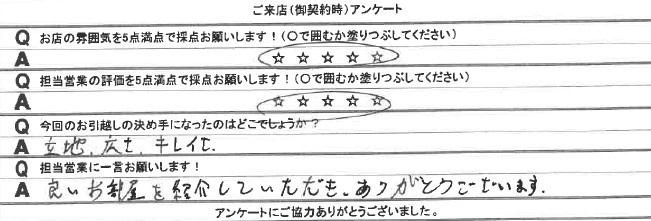 ご来店(御契約時)アンケート
Q お店の雰囲気を5点満点で採点お願いします!(〇で囲むか塗りつぶしてください)
A ☆ ☆ ☆ ☆ ☆
Q 担当営業の評価を5点満点で採点お願いします!(〇で囲むか塗りつぶしてください)
A ☆ ☆ ☆ ☆ ☆
Q 今回のお引越しの決め手になったのはどこでしょうか?
A 立地、広さ、キレイさ。
Q 担当営業に一言お願いします!
A 良いお部屋を紹介していただき、ありがとうございます。
アンケートにご協力ありがとうございました。